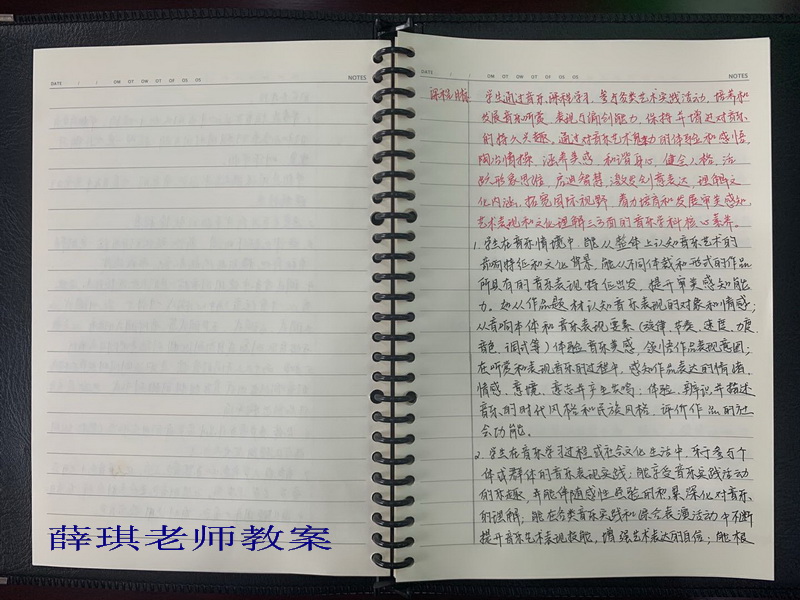 DATE / / OM OT OW OT OF OS OS NOTES
薛琪老师教案
DATE / / OM OT OW OT OF OS OS NOTES
课程目标
学生通过音乐课程学习，参与各类艺术实践活动，培养和
发展音乐听赏、表现与编创能力，保持并增进对音乐
的持久兴趣。通过对音乐艺术魅力的体验和感悟，
陶冶情操，涵养美感，和谐身心，健全人格，活
跃形象思维，启迪智慧，激发创意表达，理解文
化内涵，拓宽国际视野，着力培育和发展审美感知、
艺术表现和文化理解三方面的音乐学科核心素养。
1.学生在音乐情境中，能从整体上认知音乐艺术的
音响特征和文化背景，能从不同体裁和形式的作品
所具有的音乐表现特征出发，提升审美感知能
力。如从作品题材认知音乐表现的对象和情感；
从音响本体和音乐表现要素（旋律、节奏、速度、力度、
音色、调式等）体验音乐美感，领悟作品表现意图；
在听赏和表现音乐的过程中，感知作品表达的情绪、
情感、意境、意志并产生共鸣；体验、辨识并描述
音乐的时代风格和民族风格，评价作品的社
会功能。
2.学生在音乐学习过程或社会文化生活中，乐于参与个
体或群体的音乐表现实践；能享受音乐实践活动
的乐趣，并能伴随感性经验的积累深化对音乐
的理解；能在各类音乐实践和综合表演活动中不断
提升音乐艺术表现技能，增强艺术表达的自信；能根